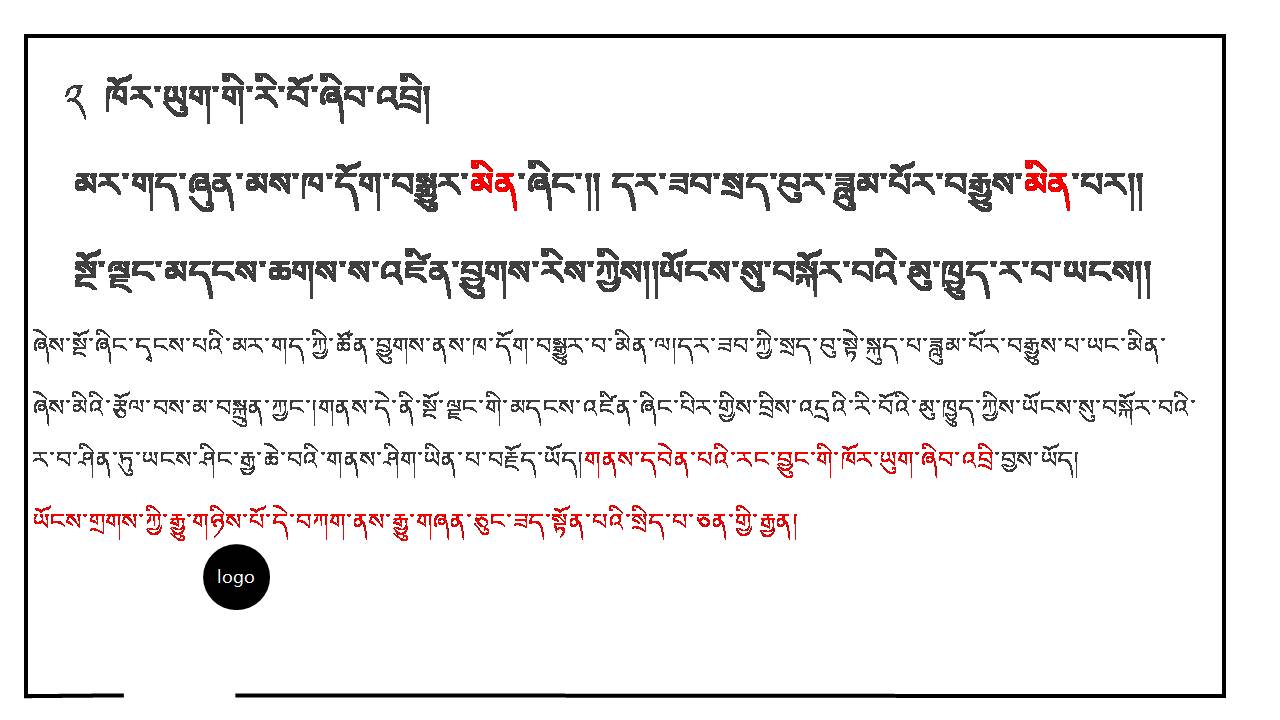 ༢ ཁོར་ཡུག་གི་རི་བོ་ཞིབ་འབྲི།
མར་གད་ཞུན་མས་ཁ་དོག་བསྒྱུར་མིན་ཞིང་།། དར་ཟབ་སྲད་བུར་ཟླུམ་པོར་བརྒྱུས་མིན་པར།།
སྔོ་ལྗང་མདངས་ཆགས་ས་འཛིན་བྱུགས་རིས་ཀྱིས།།ཡོངས་སུ་བསྐོར་བའི་མུ་ཁྱུད་ར་བ་ཡངས།།
ཞེས་སྔོ་ཞིང་དྭངས་པའི་མར་གད་ཀྱི་ཚོན་བྱུགས་ནས་ཁ་དོག་བསྒྱུར་བ་མིན་ལ།དར་ཟབ་ཀྱི་སྲད་བུ་སྟེ་སྐུད་པ་ཟླུམ་པོར་བརྒྱུས་པ་ཡང་མིན་
ཞེས་མིའི་རྩོལ་བས་མ་བསྐྲུན་ཀྱང་།གནས་དེ་ནི་སྔོ་ལྗང་གི་མདངས་འཛིན་ཞིང་པིར་གྱིས་བྲིས་འདྲའི་རི་བོའི་མུ་ཁྱུད་ཀྱིས་ཡོངས་སུ་བསྐོར་བའི་
ར་བ་ཤིན་ཏུ་ཡངས་ཤིང་རྒྱ་ཆེ་བའི་གནས་ཤིག་ཡིན་པ་བརྗོད་ཡོད།གནས་དབེན་པའི་རང་བྱུང་གི་ཁོར་ཡུག་ཞིབ་འབྲི་བྱས་ཡོད།
ཡོངས་གྲགས་ཀྱི་རྒྱུ་གཉིས་པོ་དེ་བཀག་ནས་རྒྱུ་གཞན་ཅུང་ཟད་སྟོན་པའི་སྲིད་པ་ཅན་གྱི་རྒྱན།
logo